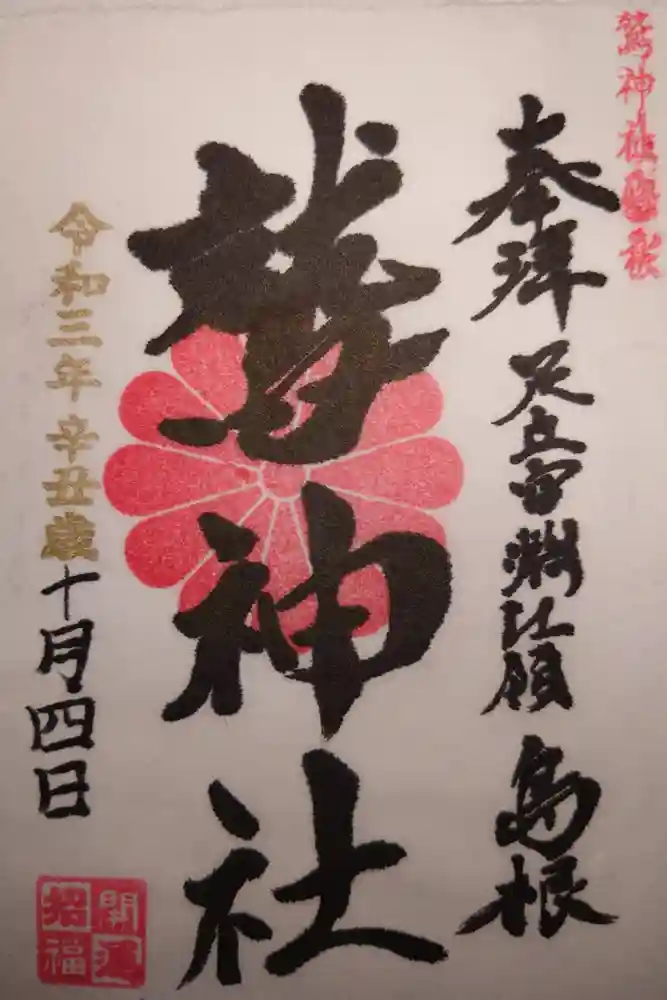 鷲神社
奉拝 足立 渕江領 島根
鷲神社
令和三年辛丑歳十月四日
開運
招福